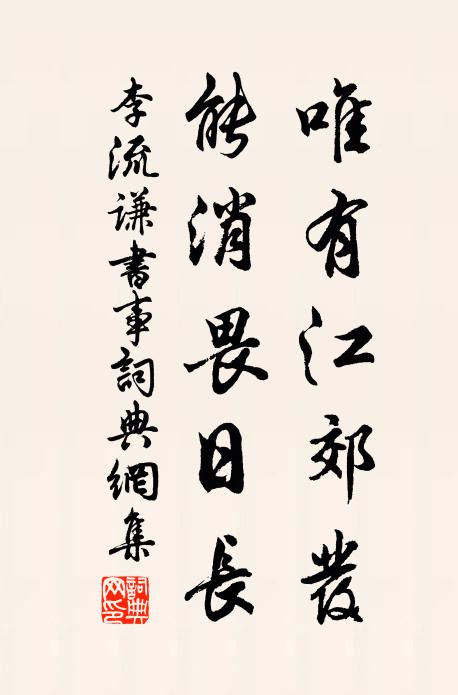 唯有江郊發
能消畏日長
李流謙書事詞典網集
詞典網印